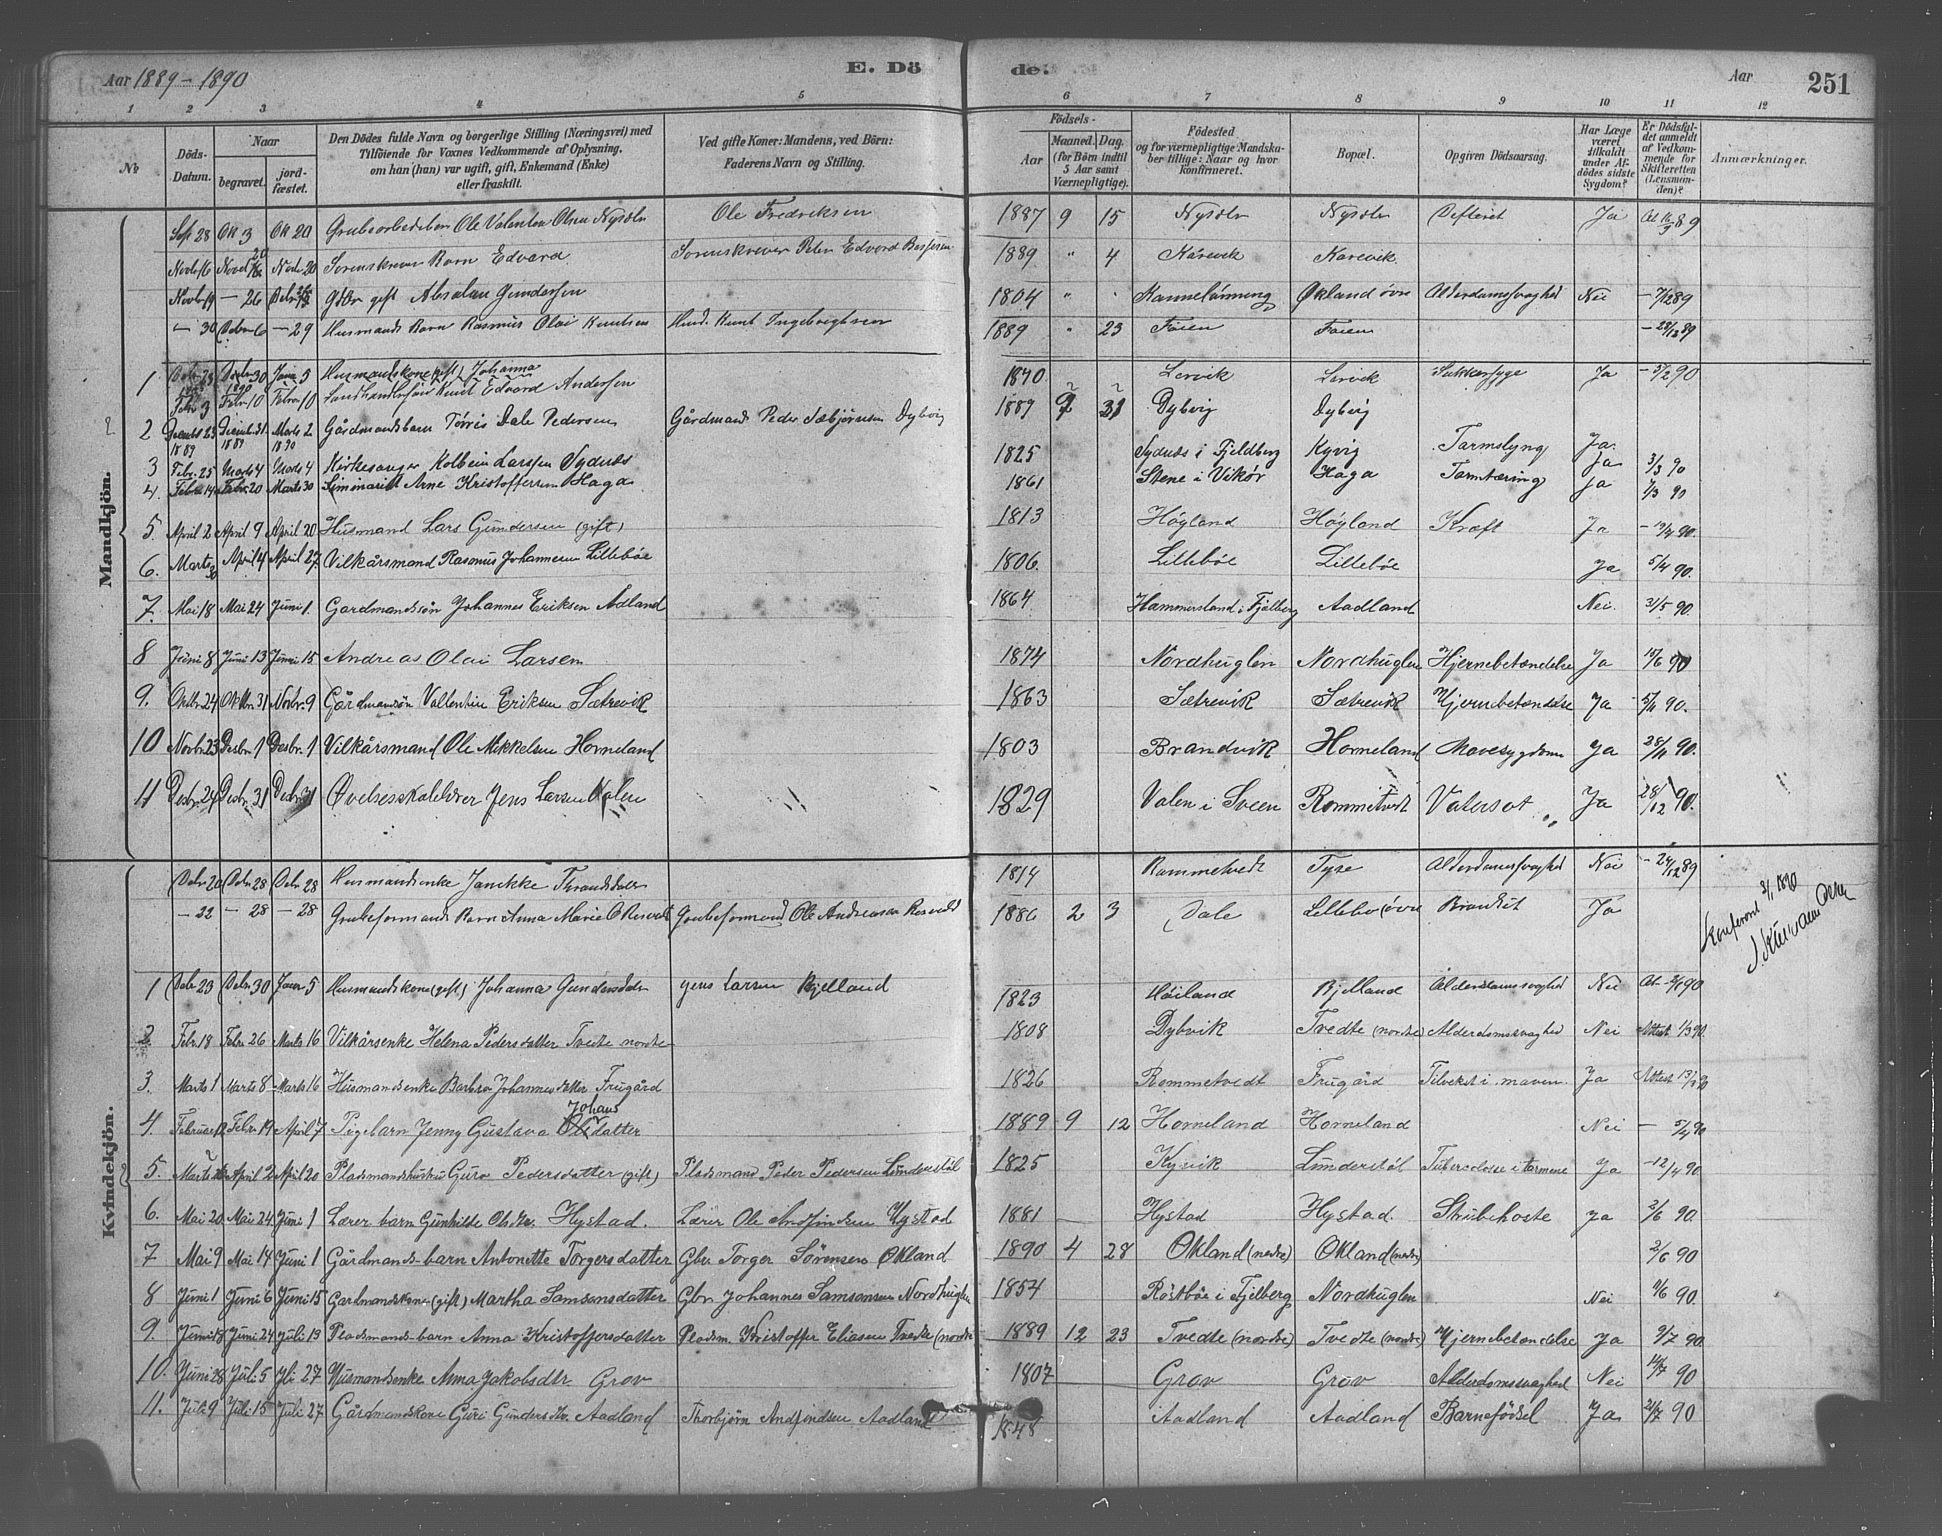 Aar 1889-1890
E. Dö
de.
Aar
251
1 2 3 4 5 6 7 8 9 10 11 12
No
Döds-Datum.
Naar
begravet.
jord-fæstet.
Den Dödes fulde Navn og borgerlige Stilling (Næringsvei) med
Tilföiende for Voxnes Vedkommende af Oplysning,
om han (hun) var ugift, gift, Enkemand (Enke)
eller fraskilt.
Ved gifte Koner: Mandens, ved Börn:
Faderens Navn og Stilling.
Födsels-
Aar
Maaned. Dag.
(for Börn indtil
5 Aar samt
Værnepligtige).
Födested
og for værnepligtige Mandska-
ber tillige: Naar og hvor
konfirmeret.
Bopæl.
Opgiven Dödsaarsag.
Har Læge
været
tilkaldt
under Af-
dödes sidste
Sygdom?
Er Dödsfal-
det anmeldt
af Vedkom-
mende for
Skifteretten
(Lensman-
den)?
Anmærkninger.
Mandkjön.
Sept 28 Ok 3 Ok 20 Ole Valentin Olsen Ole Fredriksen 1887 9 15 Ja
Novbr 16 20 Sorenskriver Barn Edvard Sorenskriver Peter Edvard 1889 " 4 Kårevik Karevik
Novbr 19 - 26 gift Absalon Gundersen 1804 " Økland øvre Alderdomssvaghed Nei - 7/12 89
- 30 Debr 6 - 29 Husmands Barn Rasmus Olai Knutsen Husm. Knut 1889 " 23 Foien Foien - 28/12 89
1 Johanna 1840 Lervik Lervik Sukkersyge Ja - 3/2 90
1890 Febr 3 Febr 10 Febr 10 Knut Edvard Andersen 1889 31 Dybvig Dybvig
2 23 1889 31 1889 Marts 2 1890 Gårdmandsbarn Tørris Dale Pedersen Gårdmand Peder Dybvig
3 Febr. 25 Marts 4 Marts 4 Kirkesanger Kolbein Larssen Sydnæs 1825 Sydnæs i Fjeldberg Kyvig Tarmslyng Ja 3/3 90
4. Febr. 14 Febr. 20 Marts 30 Siminarist Arne Kristoffersen Haga 1861 Stene i Vikør Haga Tarmtæring Ja 7/3 90
5. April 2 April 9 April 20 Husmand Lars Gundersen (gift) 1813 Höyland Höyland Kræft Ja - 90.
6. Marts 30 April 4 April 27. Vilkårsmand Rasmus Johannesen Lillebøe 1806. Lillebøe Lillebøe Ja 5/4 90.
7. Mai 18 Mai 24 Juni 1. Gårdmandssøn Johannes Eriksen Adland 1864. Hammersland i Fjelberg Aadland Nei. 31/5 90.
8 Juni 8 Juni 13 Juni 15 Andreas Olai Larsen 1874 Nordhuglen Nordhuglen Hjernebetændelse Ja 15/6 90
9. Oktbr. 24 Oktbr. 31 Novbr. 9 Gårdmandsøn Vallentin Eriksen Sætrevik 1863 Sætrevik Sætrevik Hjernebetændelse Ja 5/11 90.
10 Novbr. 23 Desbr. 1 Desbr. 1 Vilkårsmand Ole Mikkelsen Horneland 1803 Brandvik Horneland Mavesygdom Ja 28/11 90.
11 Desbr. 24 Desbr. 31 Desbr. 31 Øvelsesskolelærer Jens Larsen Valen 1829 Valen i Sveen Rommetvedt Vatersot Ja 28/12 90.
Kvindekjön.
Debr 20 Debr 28 Debr 28 Husmandsenke Janikke 1814 Rommetvedt Tyse Alderdomssvaghed Nei - 24/12 89
- 22 - 28 - 28 Grubeformands Barn Anna Marie Grubeformand Ole Andreasen 1886 2 3 Dale Lillebø (øvre Ja
Konferert 1890
1 Debr 23 Debr 30 Janr 5 Husmandskone (gift) Johanna Gundersdatter Jens Larsen Bjelland 1823 Höiland Bjelland Alderdomssvaghed Nei
2. Febr 18 Febr 26 Marts 16 Vilkårsenke Helena Pedersdatter Tvedte nordre 1808 Dybvik Tvedte (nordre) Alderdomssvaghed Nei Attest 1/3 90.
3. Marts 1 Marts 8 Marts 16 Husmandsenke Barbra Johannesdatter Frugård 1826 Rommetvedt Frugård Tilvekst i maven. Ja Attest 13/3 90
4. Februar Febr. 19 April 7 Pigebarn Jenny Gustava Johansdatter 1889 9 12 Horneland Horneland Nei - 5/4 90
5. Marts April 2 April 20 Pladsmandshustru Guro Pedersdatter (gift) Pladsmand Peder Pedersen Lunderstøl 1825 Kyvik Lunderstøl Tuberculose i tarmene Ja - 12/4 90
6. Mai 20 Mai 24 Juni 1 Lærer barn Gunhilde Olsdtr. Hystad. Lærer Ole Andfindsen Hystad 1881 Hystad Hystad. Strubehoste Ja 2/6 90.
7 Mai 9 Mai 14 Juni 1 Gårdmands-barn Antonette Torgersdatter Gbr Torger Sörensen Økland 1890 4 28 Økland (nedre) Økland (nedre) 2/6 90
8 Juni 1 Juni 6 Juni 15 Gardmandskone (gift) Martha Samsonsdatter Gbr. Johannes Samsonsen Nordhuglen 1854 Röstböe i Fjelberg Nordhuglen Nei 11/6 90.
9. Juni 18 Juni 24 Juli 13 Pladsmands-barn Anna Kristoffersdatter Pladsm. Kristoffer Eliasen Tvedte (nordre 1889 12 23 Tvedte (nordre) Tvedte (nordre) Hjernebetændelse Ja 9/7 90.
10. Juni 28 Juli 5 Juli 27 Husmandsenke Anna Jakobsdtr. Grov 1807 Grov Grov Alderdomssvaghed Nei 14/7 90
11. Juli 9 Juli 15 Juli 27 Gårdmandskone Guri Gundersdtr. Aadland Thorbjörn Andfindsen Aadland 1848 Aadland Aadland Barnefödsel Ja 21/7 90